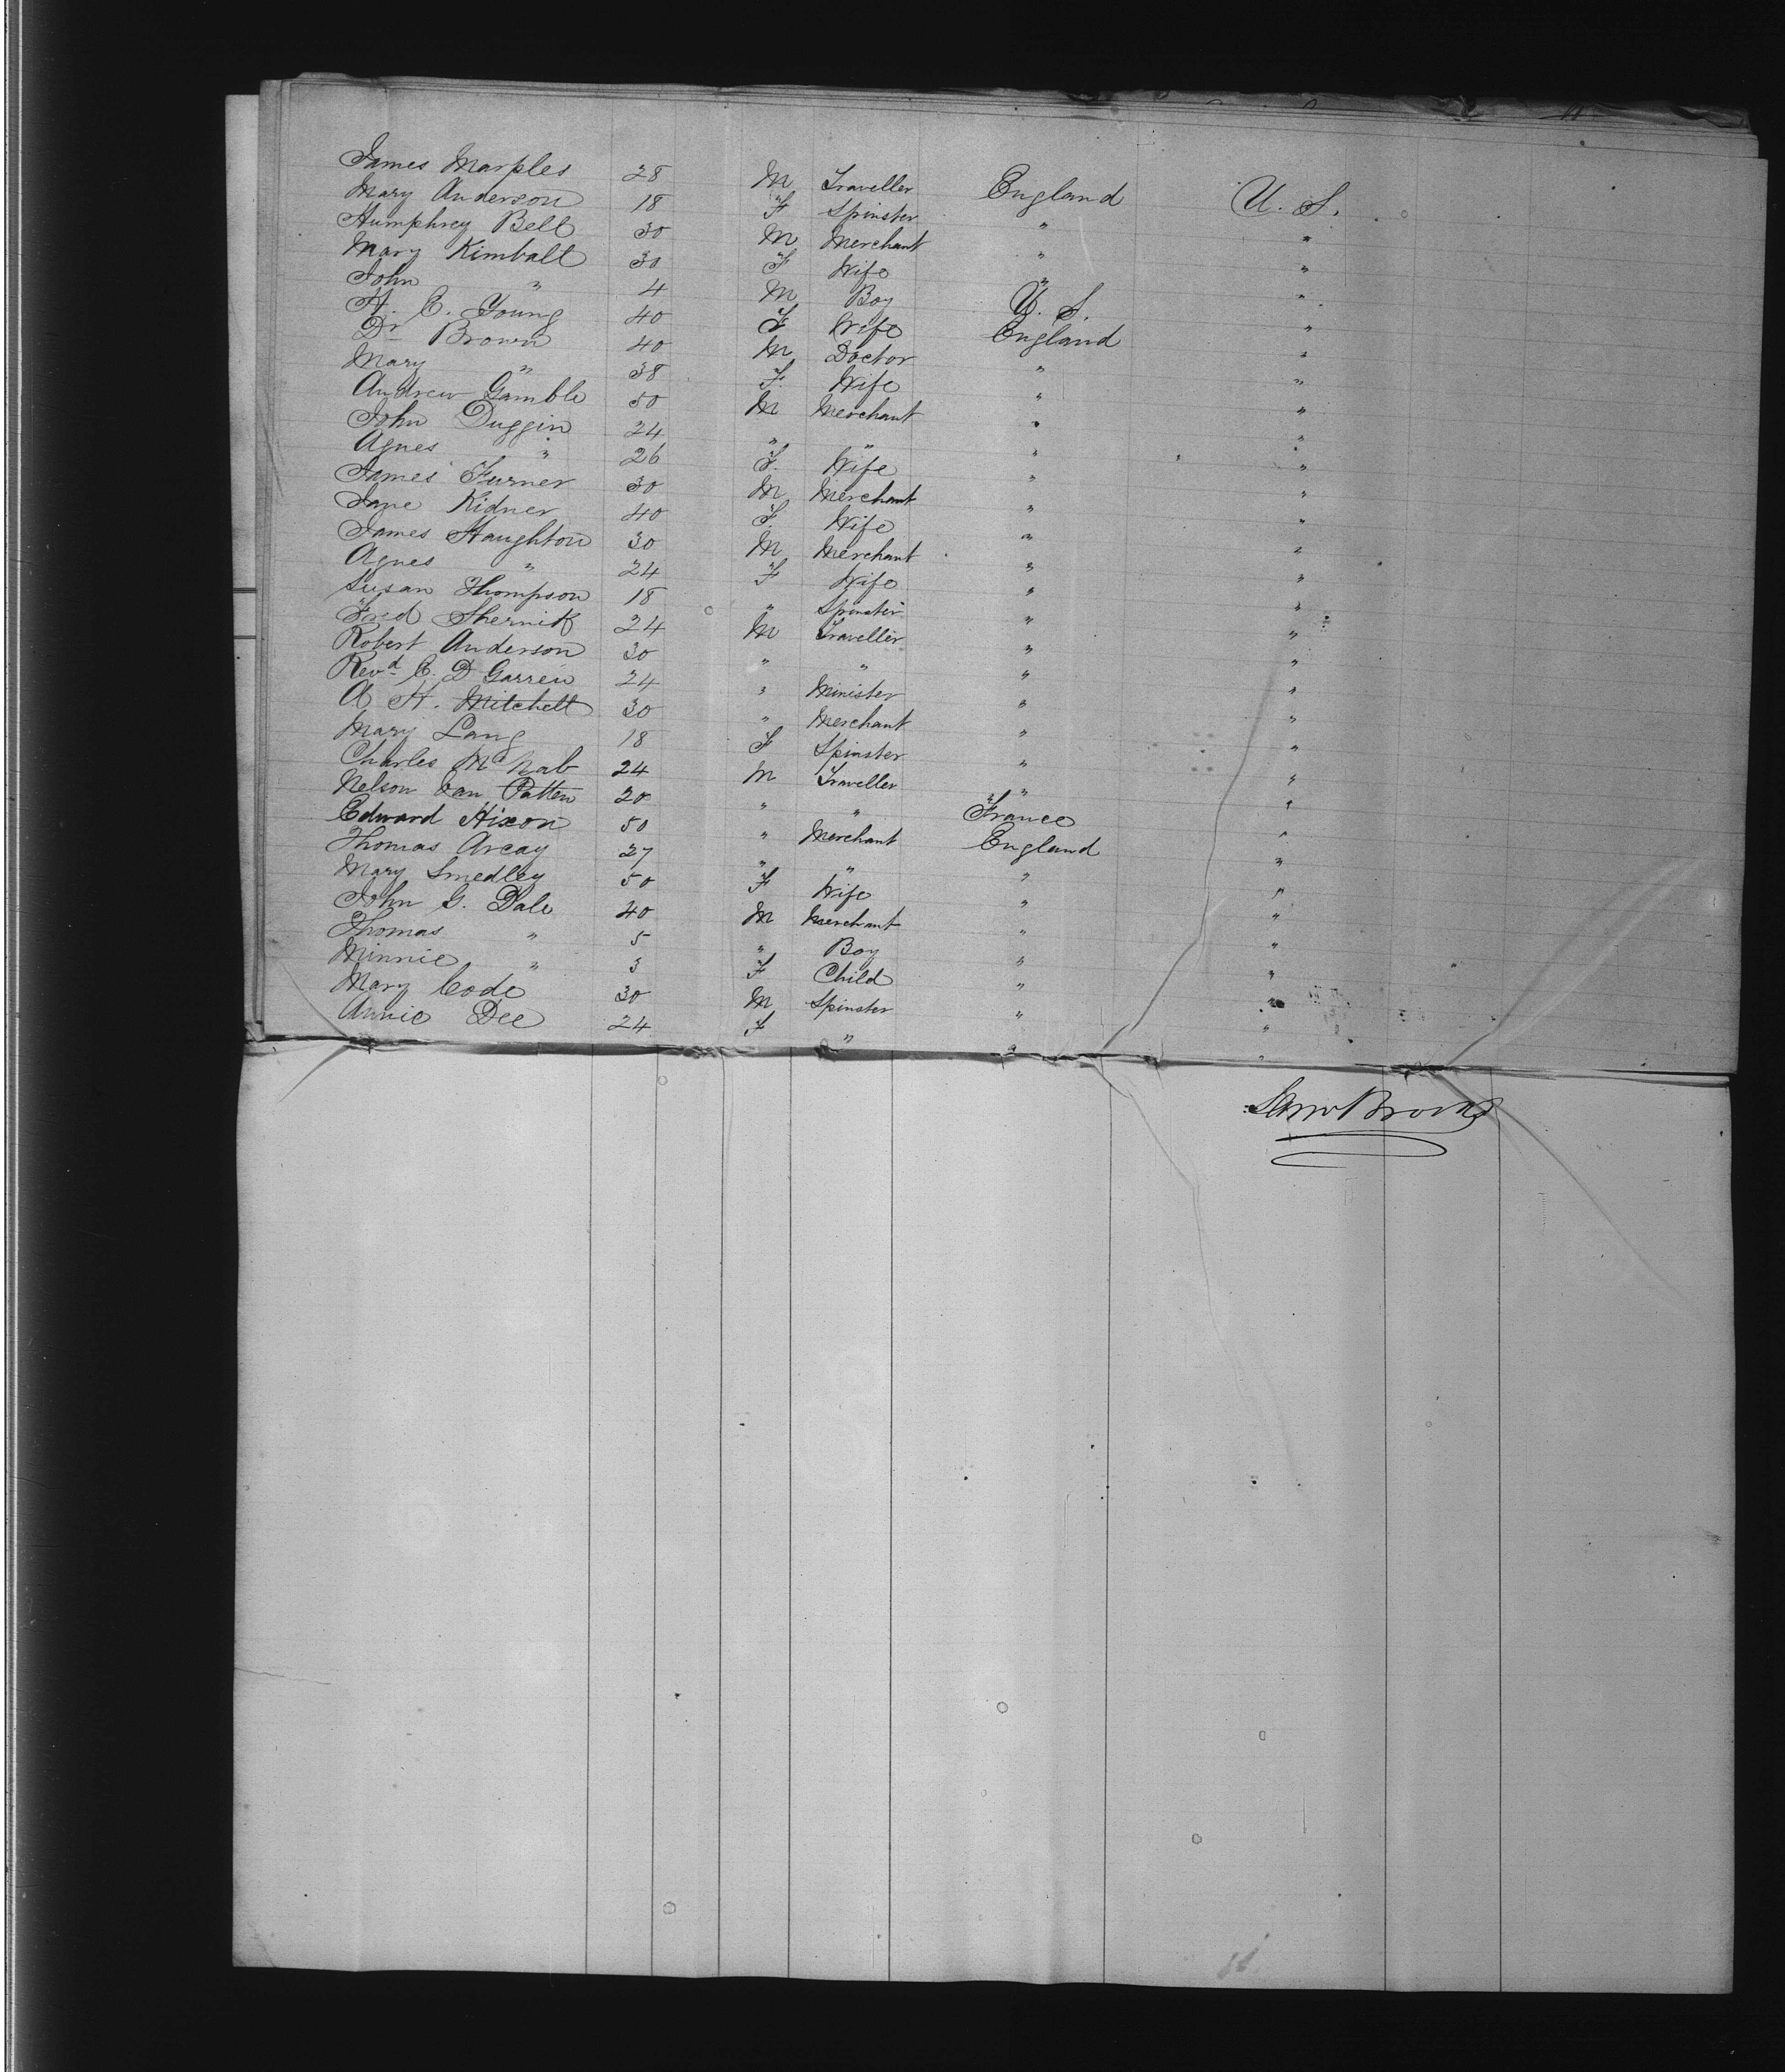 James Marples 28 M Traveller England U. S.
Mary Anderson 18 F Spinster " "
Humphrey Bell 30 M Merchant " "
Mary Kimball 30 F Wife " "
John " 4 M Boy U. S. "
H. C. Young 40 F Wife England "
Dr Brown 40 M Doctor " "
Mary " 38 F. Wife " "
Andrew Gamble 50 M Merchant " "
John Duggin 24 " " " "
Agnes " 26 F. Wife " "
James Furner 30 M Merchant " "
Jane Kidner 40 F. Wife " "
James Haughton 30 M Merchant " "
Agnes " 24 F Wife " "
Susan Thompson 18 " Spinster " "
Fred 24 M Traveller " "
Robert Anderson 30 " " " "
Revd C. D 24 " Minister " "
A H. Mitchell 30 " Merchant " "
Mary Lang 18 F Spinster " "
Charles McNab 24 M Traveller " "
Nelson Van Patten 20 " " France "
Edward Hixon 50 " Merchant England "
Thomas Arcay 27 " " " "
Mary Smedley 50 F Wife " "
John G. Dale 40 M Merchant " "
Thomas " 5 " Boy " "
Minnie " 3 F Child " "
Mary Code 30 M Spinster " "
Annie Dee 24 F " " "